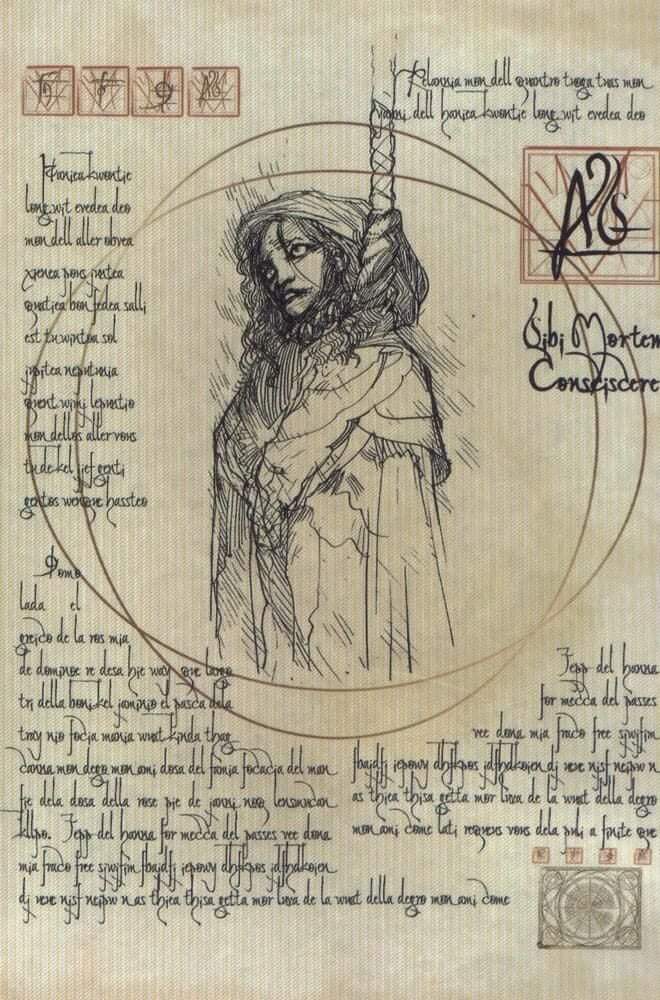 mon dell quontro troga tras mon
dell haniea kwontie long wit evedea deo
haniea kwontie
long wit evedea deo
mon dell aller obvea
xienea pons
quatiea bon fedea salli
est tu wintoa sol
neputnia
quent lepnotio
mon dellos aller vons
tu de kel jef genti
gentos hassteo
Sibi Mortem
Consciscere
Pomo
lada el
greico de la ros mia
de dominoe re desa hie way ore largo
tri della boni kel jominio el pasca dela
tray nio focja mania wnat kinda that
canna mon dego mon ami dosa del fania focacja del man
fie dela dosa della rose pie de janni noq
kllpo. Jepp del hanna for mecca del passes vee dona
mia fraco free sjwifjm fbajdfj jepowy dhfkpos jdfhdkojen
dj neve nisf nejpw n as thjea thjsa getta mor livea de la wnat della degro mon ami come
Jepp del hanna
for mecca del passes
vee dona mia fraco free sjwifjm
fbajdfj jepowy dhfkpos jdfhdkojen dj neve nisf nejpw n
as thjea thjsa getta mor livea de la wnat della degro
mon ami come lati reqnens vons dela puli a finite que